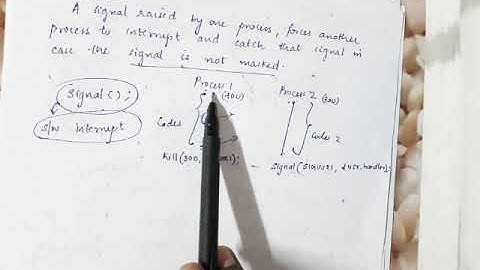 A signal raised by one process, forces another
process to interrupt and catch that signal in
case the signal is not marked.
Signal();
S/W Interrupt
Process 1
(400)
Codes
Kill(300,
Process 2
(300)
Codes 2
Signal(SIGUSR1, &usr.handler);